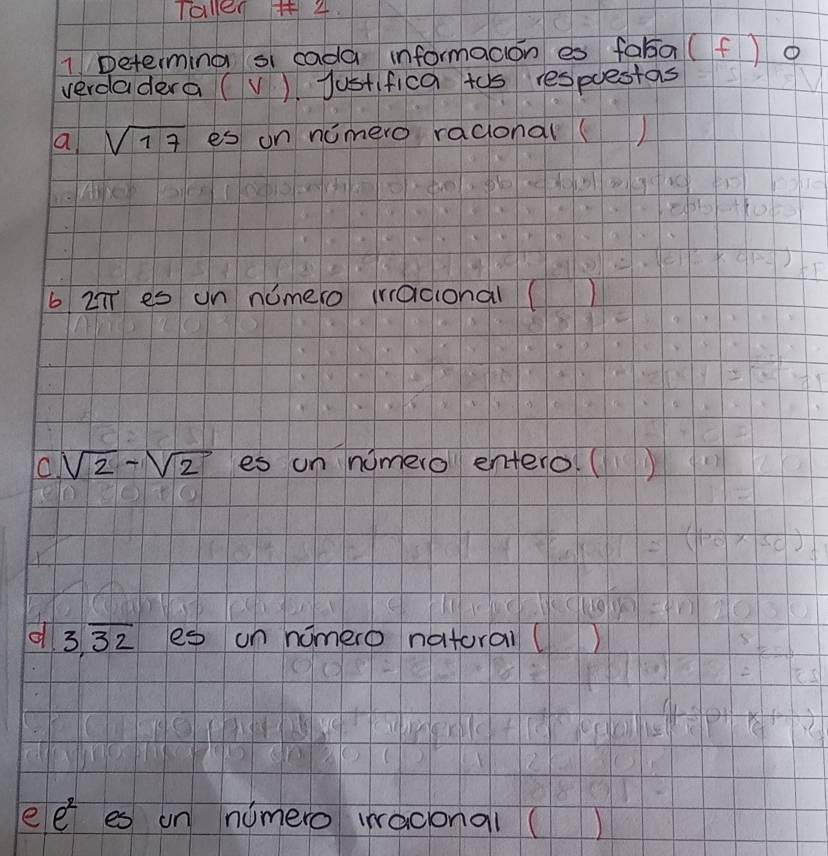 Taller # 2.
1. Determina si cada información es falsa (f) o
verdadera (V). Justifica tus respuestas
a. √17 es un número racional ( )
b 2π es un número irracional ( )
c. √2 - √2 es un número entero. ( )
d. 3,3̅2̅ es un número natural ( )
e e² es un número irracional ( )